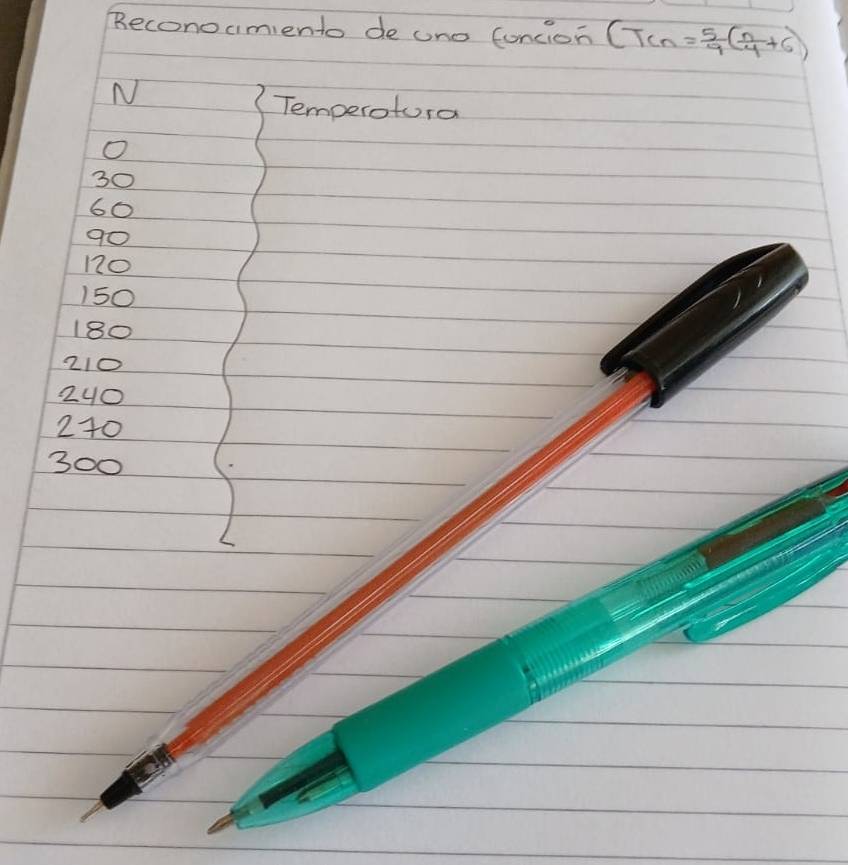 Reconocimiento de una función (Tcn = 5/9 (n/4 + 6)
N Temperatura
0
30
60
90
120
150
180
210
240
270
300